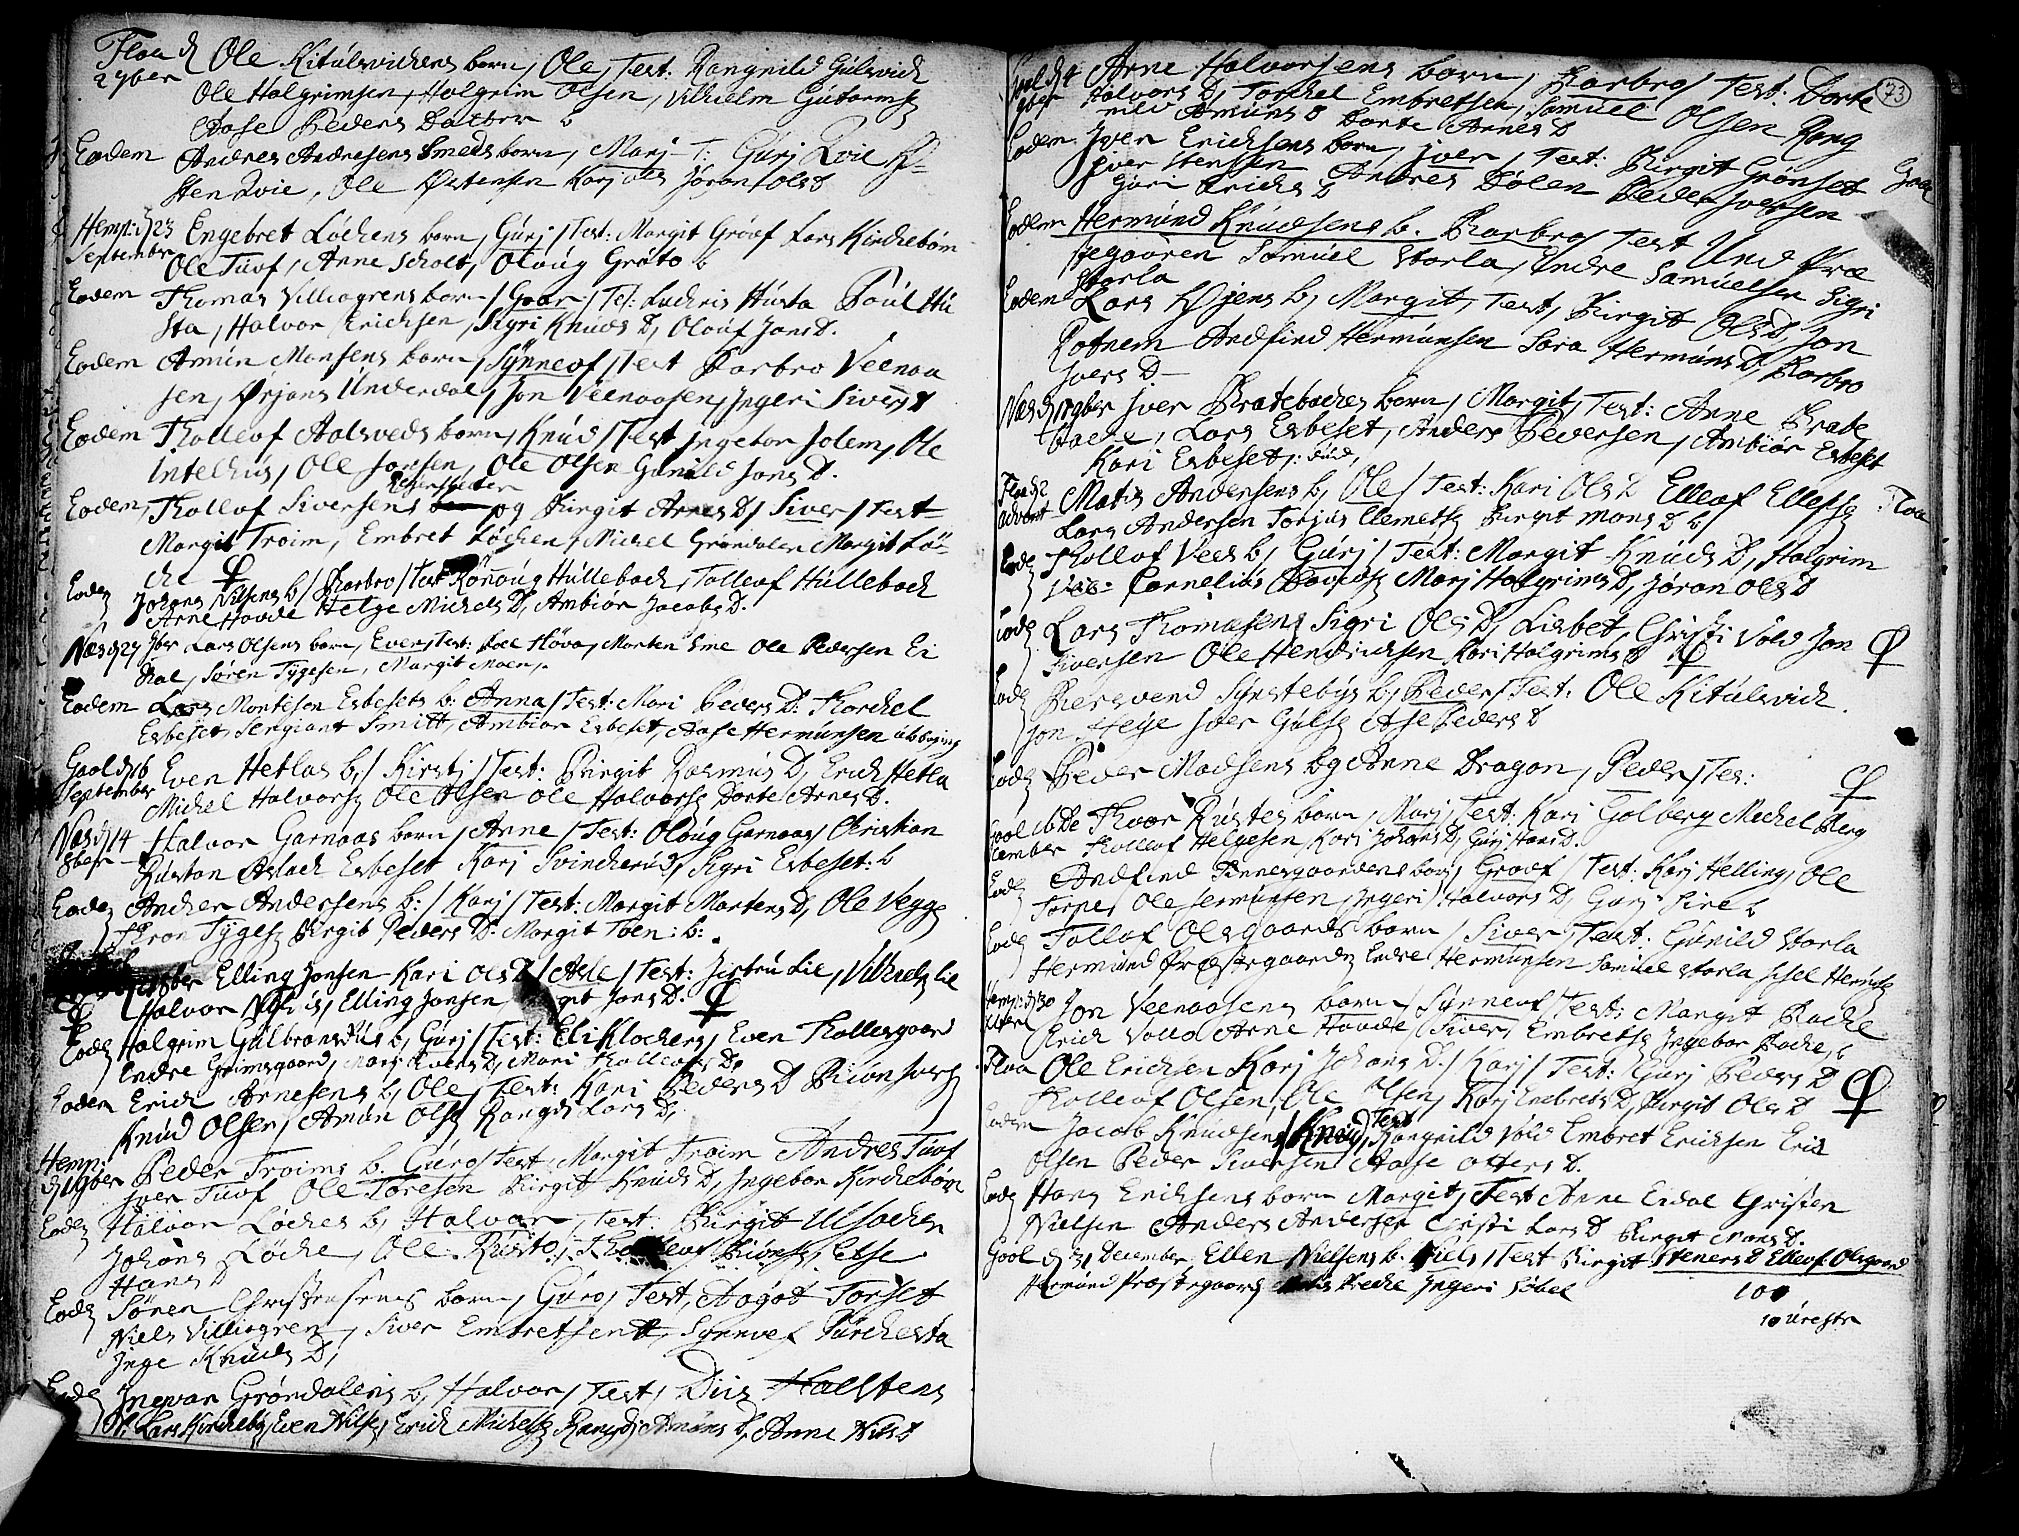 Flaa d Ole Kitulsvichens barn, Ole, Test: Rangnild Gulsvich
2 7ber Ole Halgrimsen, Halgrim Olsen, Vilhelm Gutormsz
Aase Peders Datter
Eodem Andres Andresens Smeds barn, Marj T: Gurj Qvie
sten Qvie, Ole Østensen Karj Ols Jøran Ols D
Hemp: d 23 Engebret Løchens barn, Gurj / Test: Margit Grøøf Lars Kirchebøn
September Ole Tuuf, Anne Scholt, Oloug Grøto
Eodem Thomas Villiogrens barn / Goar / Test: Luchris Husta Poul Hu
sta, Halvor Erichsen, Sigri Knuds D, Olouf Jans D.
Eodem Amun Monsens barn, Synneof / Test Barbro Veenaa
sen, Ørjans Underdal, Jon Veenaasen, Ingeri Sivers D
Eodem Tholleof Aalsveds barn, Knud / Test Ingebor Jolem, Ole
Intelhus, Ole Jonsen, Ole Olsen Gunild Jons D.
Eodem Thollof Siversens og Birgit Arnes D / Siver / Test
Margit Troim, Embret Løchen, Michel Grøndalen Margit Lø-
che
Eodz Johans Nilsens b / Barbro / Test Rønoug Hullebach, Tolleof Hullebach
Arne Haude Helge Michels D, Ambiør Jacobs D.
Næs d 27 7br Lars Olsens barn, Even, Test: Høva, Morten Sme Ole Pedersen Ei
dal, Søren Tygesen, Margit Moen,
Eodem Lars Montesen Esbesets b: Anna / Test: Mari Peders D: Thorchel
Esbeset, Sergiant Smitt, Ambiør Esbeset, Aase Hermunsen
Gool d 16 Even Hetlas b, / Kirstj / Test: Birgit Rasmus D, Erich Hetla
September Michel Halvorsz Ole Olsen Ole Halvorsz Dorte Arnes D.
Næs d 14 Halvor Garnaas barn / Anne / Test: Oloug Garnaas, Christian
8ber Rustan Aslach Esbeset Karj Svincherud, Sigri Esbeset: b
Eodez Ancher Andersens b: / Karj / Test: Margit Martens D, Ole Vegge
Thron Tygesz Birgit Peders D. Margit Toen: b:
Elling Jonsen Kari Ols D / Asle / Test: Jistru Lie, Vilhelz Lie
Halvor, Elling Jonsen Birgit Jons D.
Eodz Halgrim Gulbransøns b, Gurj / Test: Eli Klochers, Even Thollesgaard
Endre Grimsgaard, Marj Evens D, Mari Tholleofs D,
Eodem Erich Arnesens b, Ole, Test: Kari Peders D Biøn Iversz
Knud Olsen, Amun Olsz Rangdi Lars D,
Hemp: Peder Troims b. Guro / Test. Margit Troim Andres Tuuf
d 1 9ber Iver Tuuf Ole Toresen Birgit Knuds D, Ingebor Kirchebøn
Eodz Halvor Løches b, Halvor, Test: Birgit Ulsachen
Johans Løche, Ole Rusto, Tholleof Biønsz, Else
Hans D
Eodz Søren Christensens barn, Guro, Test, Aagot Torset
Niels Villiogren, Siver Embretsen, Synnef Kirchesta
Inge Knuds D,
Eodz Ingvar Grøndalens b, Halvor / Test, Diis Halstens
D, Lars Kirchebøn Even Nilsz, Erich Michelsz Rangdi Amuns D, Anne Nils D
73
Gool d 4 Arne Halvorsens barn, Barbro / Test: Dorte
9ber Halvors D, Torchel Embretsen, Samuel Olsen Rang
nild Amuns D Dorte Arnes D
Eodem Iver Erichsens barn, Iver, Test: Birgit Grønset
Iver Stensen Andres Dølen Peder Iversen
Guri Erichs D
Eodem Hermund Knudsens b. Barbro / Test Und Præ
stegaaren Samuel Storla, Endre Samuelsen Sigri
Storla
Eodem Lars Øjens b, Margit, Test, Birgit Ols D, Jon
Rotnem Andfind Hermunsen Sara Hermuns D, Barbro
Ivers D
Næs d 17 9ber Iver Bratebaches barn, Margit, Test: Arne Brate
bache, Lars Esbeset, Anders Pedersen, Ambiør Esbeset
Kari Esbeset
Flaa d 2 Matis Andersens b, Ole / Test: Kari Ols D Elleof Ellefsz Flaa
Advent Lars Andersen Torjus Clemetsz Birgit Mons D b
Eodz Thollof Veds b, Gurj / Test: Margit Knuds D, Halgrim
Cornelius Marj Halgrims D, Jøran Ols D
Eodz Lars Thomasens Sigri Ols D, Lisbet, Christi Vold Jon
Siversen Ole Hendrichsen Kari Halgrims D
Eodz Bersvend Synstebys b, Peder / Test: Ole Kitulsvich
Jon Heije Iver Gulsz Ase Peders D
Eodz Peder Madsens b og Anne Dragon, Peder / Tes:
Gool 16 De Thoor Rustes barn, Marj, Test: Kari Golberg Michel Berg
cember Thollof Helgesen, Kari Johans D, Gurj Hans D.
Eodz Andfind Finnesgaardens barn, Groof / Test: Karj Helling, Ole
Torpe, Ole Hermunsen, Ingeri Halvors D, Gurj Sire b
Eodz Tollof Olsgaards barn / Siver, Test: Gunild Storla
Hermund Præstegaardz Endre Hermunsen Samuel Storla Sisel Hermsz
Hemp: d 30 Jon Veenaasens barn, Synneof / Test: Margit Bache
Erich Volla Arne Haude, Siver Embretsz Ingebor Bache, b
Flaa Ole Erichsen Karj Johans D. / Karj / Test: Gurj Peders D
Tholleof Olsen, Ole Olsen, Karj Enebrets D, Birgit Ols D
Eodem Jacob Knudsens / Knud, Test Rangnild Vold Embret Erichsen Erich
Olsen Peder Siversen Aase Otters D.
Eodz Hans Erichsens barn Margit, Test Anne Eidal Christen
Nielsen Anders Andersen Cersti Lars D Birgit Mons D.
Gool d 31 December, Ellen Nielsens b. Niels / Test Birgit Steners D Elleof Olsgaard
Hermund Præstegaardz Bache Ingeri Søbel
100
10 urestr